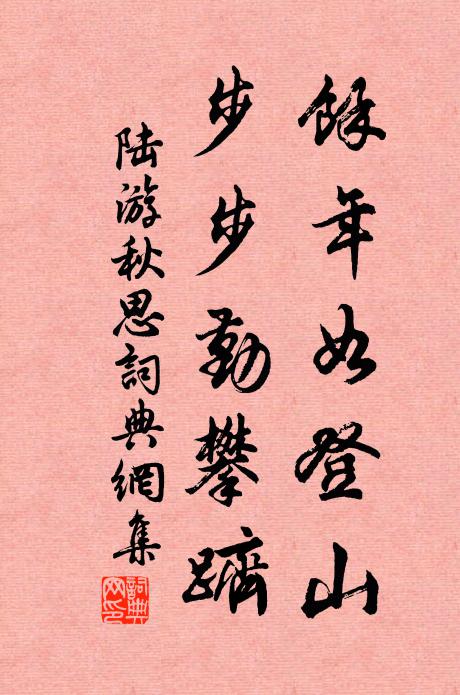 餘年如登山
步步勤攀躋
陸游秋思詞典網集
詞典網印